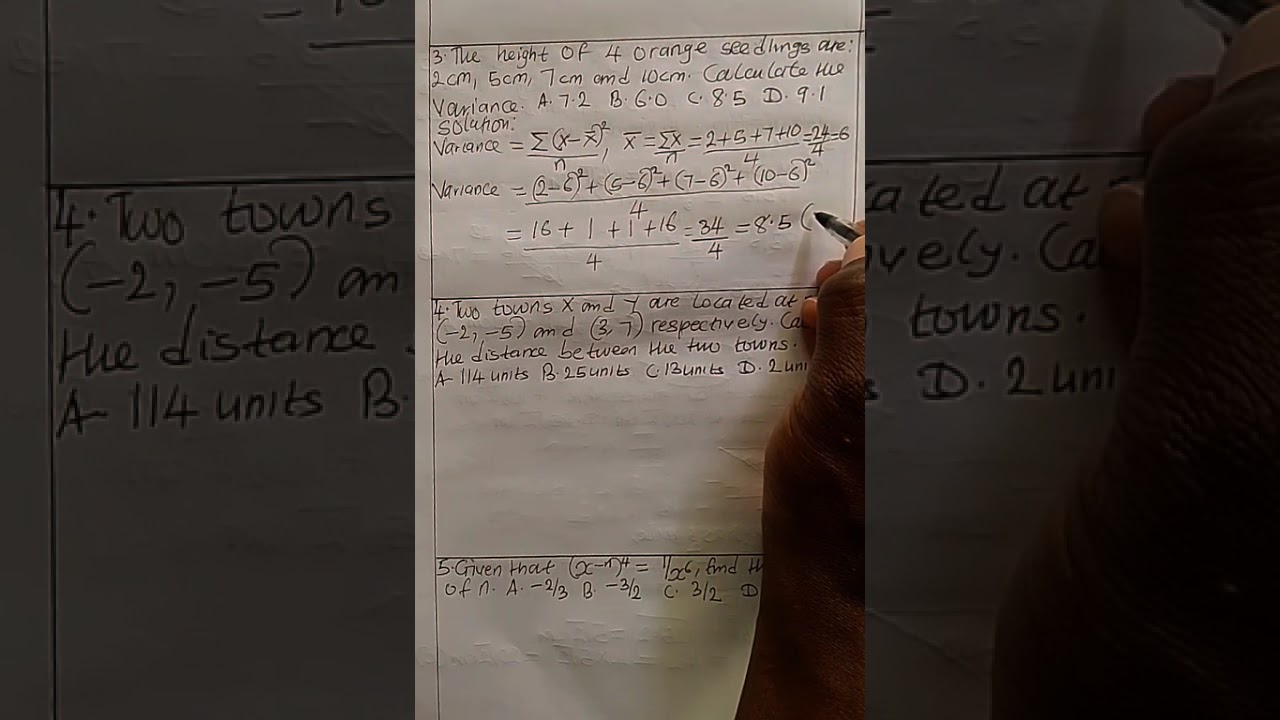 3. The height of 4 orange seedlings are:
2cm, 5cm, 7cm and 10cm. Calculate the
Variance. A. 7.2 B. 6.0 C. 8.5 D. 9.1
Solution:
Variance = Σ(x-x̄)²/n, x̄ = Σx/n = 2+5+7+10/4 = 24/4 = 6
Variance = (2-6)²+(5-6)²+(7-6)²+(10-6)²/4
= 16+1+1+16/4 = 34/4 = 8.5 (
4. Two towns X and Y are located at
(-2, -5) and (3, 7) respectively. Ca
the distance between the two towns.
A 114 units B. 25 units C. 13 units D. 2 uni
5. Given that (x-n)4 = 1/x6, find th
of n. A. -2/3 B. -3/2 C. 3/2 D
4. Two towns
(-2, -5) an
the distance
A 114 units B.
ated at
vely. Ca
towns.
s D. 2 uni